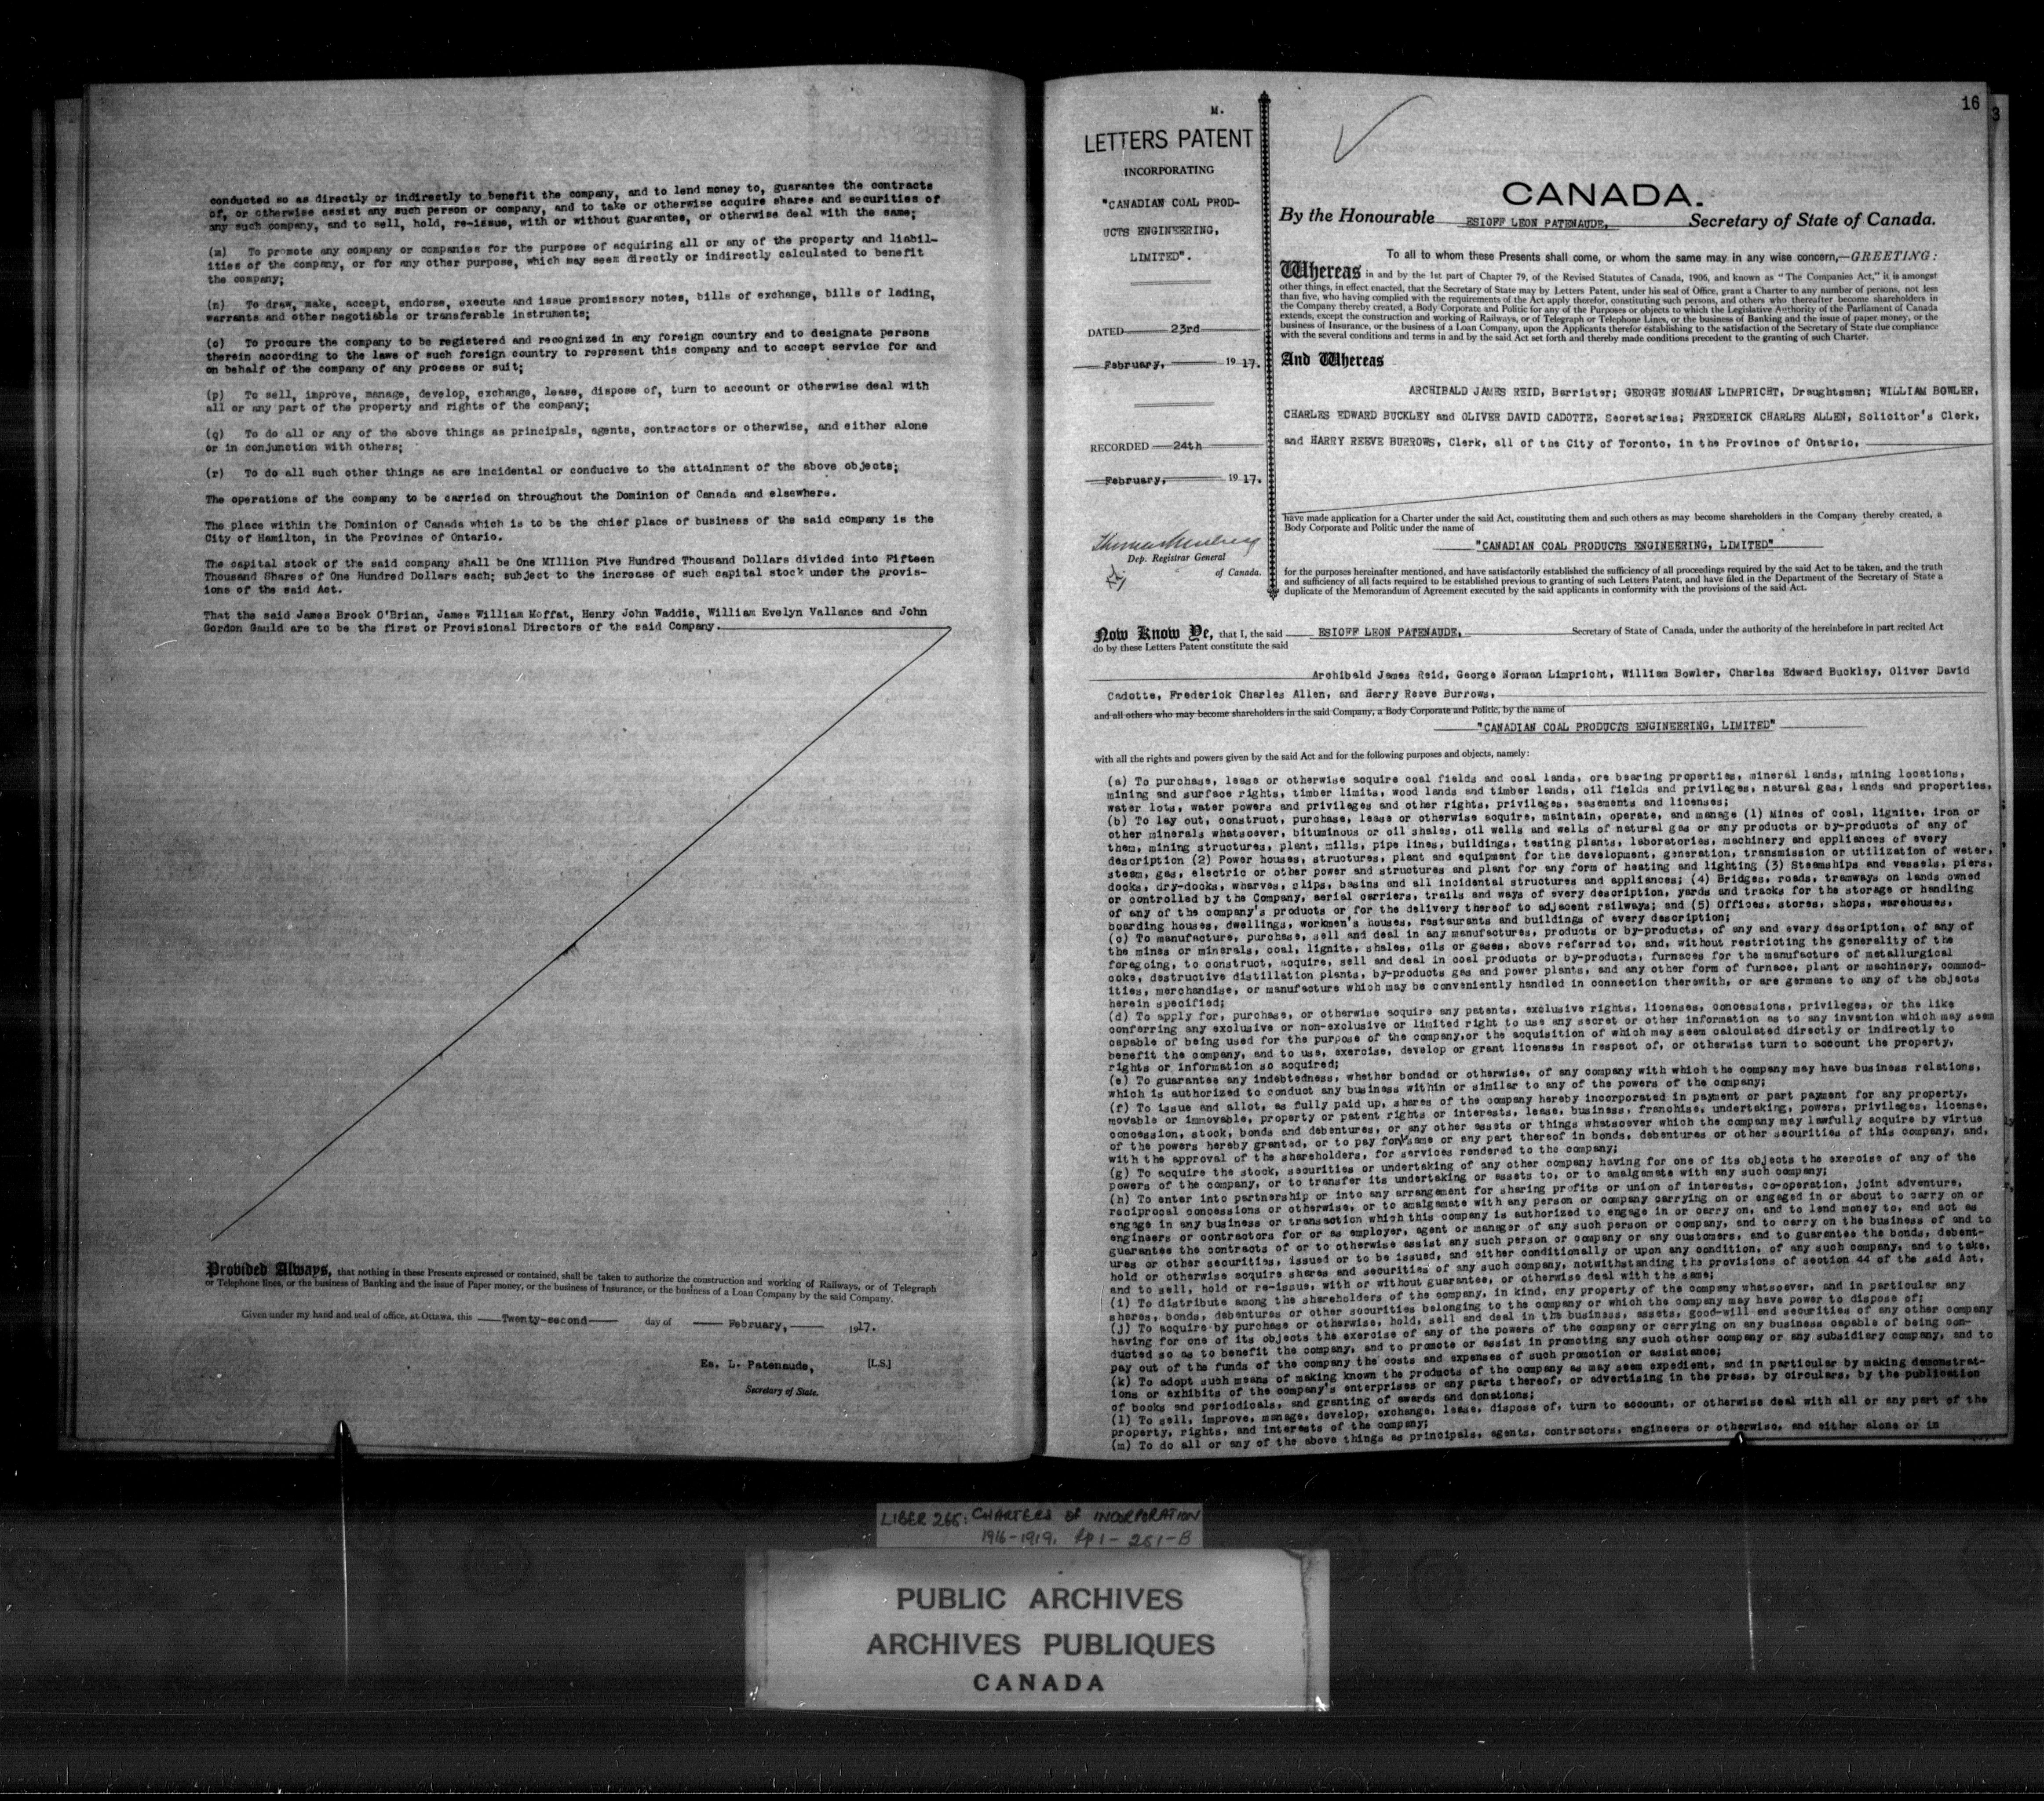 conducted so as directly or indirectly to benefit the company, and to lend money to, guarantee the contracts
of, or otherwise assist any such person or company, and to take or otherwise acquire shares and securities of
any such company, and to sell, hold, re-issue, with or without guarantee, or otherwise deal with the same;
(m) To promote any company or companies for the purpose of acquiring all or any of the property and liabil-
ities of the company, or for any other purpose, which may seem directly or indirectly calculated to benefit
the company;
(n) To draw, make, accept, endorse, execute and issue promissory notes, bills of exchange, bills of lading,
warrants and other negotiable or transferable instruments;
(o) To procure the company to be registered and recognized in any foreign country and to designate persons
therein according to the laws of such foreign country to represent this company and to accept service for and
on behalf of the company of any process or suit;
(p) To sell, improve, manage, develop, exchange, lease, dispose of, turn to account or otherwise deal with
all or any part of the property and rights of the company;
(q) To do all or any of the above things as principals, agents, contractors or otherwise, and either alone
or in conjunction with others;
(r) To do all such other things as are incidental or conducive to the attainment of the above objects;
The operations of the company to be carried on throughout the Dominion of Canada and elsewhere.
The place within the Dominion of Canada which is to be the chief place of business of the said company is the
City of Hamilton, in the Province of Ontario.
The capital stock of the said company shall be One MIllion Five Hundred Thousand Dollars divided into Fifteen
Thousand Shares of One Hundred Dollars each; subject to the increase of such capital stock under the provis-
ions of the said Act.
That the said James Brook O'Brian, James William Moffat, Henry John Waddie, William Evelyn Vallance and John
Gordon Gauld are to be the first or Provisional Directors of the said Company.
Provided Always, that nothing in these Presents expressed or contained, shall be taken to authorize the construction and working of Railways, or of Telegraph
or Telephone lines, or the business of Banking and the issue of Paper money, or the business of Insurance, or the business of a Loan Company by the said Company.
Given under my hand and seal of office, at Ottawa, this Twenty-second day of February, 1917.
Es. L. Patenaude, [L.S.]
Secretary of State.
16
3
M.
LETTERS PATENT
INCORPORATING
"CANADIAN COAL PROD-
UCTS ENGINEERING,
LIMITED".
DATED 23rd
February, 1917.
RECORDED 24th
February, 1917.
Dep. Registrar General
of Canada.
CANADA.
By the Honourable ESIOFF LEON PATENAUDE, Secretary of State of Canada.
To all to whom these Presents shall come, or whom the same may in any wise concern,—GREETING:
Whereas in and by the 1st part of Chapter 79, of the Revised Statutes of Canada, 1906, and known as "The Companies Act," it is amongst
other things, in effect enacted, that the Secretary of State may by Letters Patent, under his seal of Office, grant a Charter to any number of persons, not less
than five, who having complied with the requirements of the Act apply therefor, constituting such persons, and others who thereafter become shareholders in
the Company thereby created, a Body Corporate and Politic for any of the Purposes or objects to which the Legislative Authority of the Parliament of Canada
extends, except the construction and working of Railways, or of Telegraph or Telephone Lines, or the business of Banking and the issue of paper money, or the
business of Insurance, or the business of a Loan Company, upon the Applicants therefor establishing to the satisfaction of the Secretary of State due compliance
with the several conditions and terms in and by the said Act set forth and thereby made conditions precedent to the granting of such Charter.
And Whereas
ARCHIBALD JAMES REID, Barrister; GEORGE NORMAN LIMPRICHT, Draughtsman; WILLIAM BOWLER,
CHARLES EDWARD BUCKLEY and OLIVER DAVID CADOTTE, Secretaries; FREDERICK CHARLES ALLEN, Solicitor's Clerk,
and HARRY REEVE BURROWS, Clerk, all of the City of Toronto, in the Province of Ontario,
have made application for a Charter under the said Act, constituting them and such others as may become shareholders in the Company thereby created, a
Body Corporate and Politic under the name of
"CANADIAN COAL PRODUCTS ENGINEERING, LIMITED"
for the purposes hereinafter mentioned, and have satisfactorily established the sufficiency of all proceedings required by the said Act to be taken, and the truth
and sufficiency of all facts required to be established previous to granting of such Letters Patent, and have filed in the Department of the Secretary of State a
duplicate of the Memorandum of Agreement executed by the said applicants in conformity with the provisions of the said Act.
Now Know Ye, that I, the said ESIOFF LEON PATENAUDE, Secretary of State of Canada, under the authority of the hereinbefore in part recited Act
do by these Letters Patent constitute the said
Archibald James Reid, George Norman Limpricht, William Bowler, Charles Edward Buckley, Oliver David
Cadotte, Frederick Charles Allen, and Harry Reeve Burrows,
and all others who may become shareholders in the said Company, a Body Corporate and Politic, by the name of
"CANADIAN COAL PRODUCTS ENGINEERING, LIMITED"
with all the rights and powers given by the said Act and for the following purposes and objects, namely:
(a) To purchase, lease or otherwise acquire coal fields and coal lands, ore bearing properties, mineral lands, mining locations,
mining and surface rights, timber limits, wood lands and timber lands, oil fields and privileges, natural gas, lands and properties,
water lots, water powers and privileges and other rights, privileges, easements and licenses;
(b) To lay out, construct, purchase, lease or otherwise acquire, maintain, operate, and manage (1) Mines of coal, lignite, iron or
other minerals whatsoever, bituminous or oil shales, oil wells and wells of natural gas or any products or by-products of any of
them, mining structures, plant, mills, pipe lines, buildings, testing plants, laboratories, machinery and appliances of every
description (2) Power houses, structures, plant and equipment for the development, generation, transmission or utilization of water,
steam, gas, electric or other power and structures and plant for any form of heating and lighting (3) Steamships and vessels, piers,
docks, dry-docks, wharves, slips, basins and all incidental structures and appliances; (4) Bridges, roads, tramways on lands owned
or controlled by the Company, aerial carriers, trails and ways of every description, yards and tracks for the storage or handling
of any of the company's products or for the delivery thereof to adjacent railways; and (5) Offices, stores, shops, warehouses,
boarding houses, dwellings, workmen's houses, restaurants and buildings of every description;
(c) To manufacture, purchase, sell and deal in any manufactures, products or by-products, of any and evary description, of any of
the mines or minerals, coal, lignite, shales, oils or gases, above referred to, and, without restricting the generality of the
foregoing, to construct, acquire, sell and deal in coal products or by-products, furnaces for the manufacture of metallurgical
coke, destructive distillation plants, by-products gas and power plants, and any other form of furnace, plant or machinery, commod-
ities, merchandise, or manufacture which may be conveniently handled in connection therewith, or are germane to any of the objects
herein specified;
(d) To apply for, purchase, or otherwise acquire any patents, exclusive rights, licenses, concessions, privileges, or the like
conferring any exclusive or non-exclusive or limited right to use any secret or other information as to any invention which may seem
capable of being used for the purpose of the company,or the acquisition of which may seem calculated directly or indirectly to
benefit the company, and to use, exercise, develop or grant licenses in respect of, or otherwise turn to account the property,
rights or information so acquired;
(e) To guarantee any indebtedness, whether bonded or otherwise, of any company with which the company may have business relations,
which is authorized to conduct any business within or similar to any of the powers of the company;
(f) To issue and allot, as fully paid up, shares of the company hereby incorporated in payment or part payment for any property,
movable or immovable, property or patent rights or interests, lease, business, franchise, undertaking, powers, privileges, license,
concession, stock, bonds and debentures, or any other assets or things whatsoever which the company may lawfully acquire by virtue
of the powers hereby granted, or to pay for same or any part thereof in bonds, debentures or other securities of this company, and,
with the approval of the shareholders, for services rendered to the company;
(g) To acquire the stock, securities or undertaking of any other company having for one of its objects the exercise of any of the
powers of the company, or to transfer its undertaking or assets to, or to amalgamate with any such company;
(h) To enter into partnership or into any arrangement for sharing profits or union of interests, co-operation, joint adventure,
reciprocal concessions or otherwise, or to amalgamate with any person or company carrying on or engaged in or about to carry on or
engage in any business or transaction which this company is authorized to engage in or carry on, and to lend money to, and act as
engineers or contractors for or as employer, agent or manager of any such person or company, and to carry on the business of and to
guarantee the contracts of or to otherwise assist any such person or company or any customers, and to guarantee the bonds, debent-
ures or other securities, issued or to be issued, and either conditionally or upon any condition, of any such company, and to take,
hold or otherwise acquire shares and securities of any such company, notwithstanding the provisions of section 44 of the said Act,
and to sell, hold or re-issue, with or without guarantee, or otherwise deal with the same;
(i) To distribute among the shareholders of the company, in kind, any property of the company whatsoever, and in particular any
shares, bonds, debentures or other securities belonging to the company or which the company may have power to dispose of;
(j) To acquire by purchase or otherwise, hold, sell and deal in the business, assets, good-will and securities of any other company
having for one of its objects the exercise of any of the powers of the company or carrying on any business capable of being con-
ducted so as to benefit the company, and to promote or assist in promoting any such other company or any subsidiary company, and to
pay out of the funds of the company the costs and expenses of such promotion or assistance;
(k) To adopt such means of making known the products of the company as may seem expedient, and in particular by making demonstrat-
ions or exhibits of the company's enterprises or any parts thereof, or advertising in the press, by circulars, by the publication
of books and periodicals, and granting of awards and donations;
(l) To sell, improve, manage, develop, exchange, lease, dispose of, turn to account, or otherwise deal with all or any part of the
property, rights, and interests of the company;
(m) To do all or any of the above things as principals, agents, contractors, engineers or otherwise, and either alone or in
LIBER 265: CHARTERS of INCORPORATION
1916-1919. pp 1- 251-B
PUBLIC ARCHIVES
ARCHIVES PUBLIQUES
CANADA